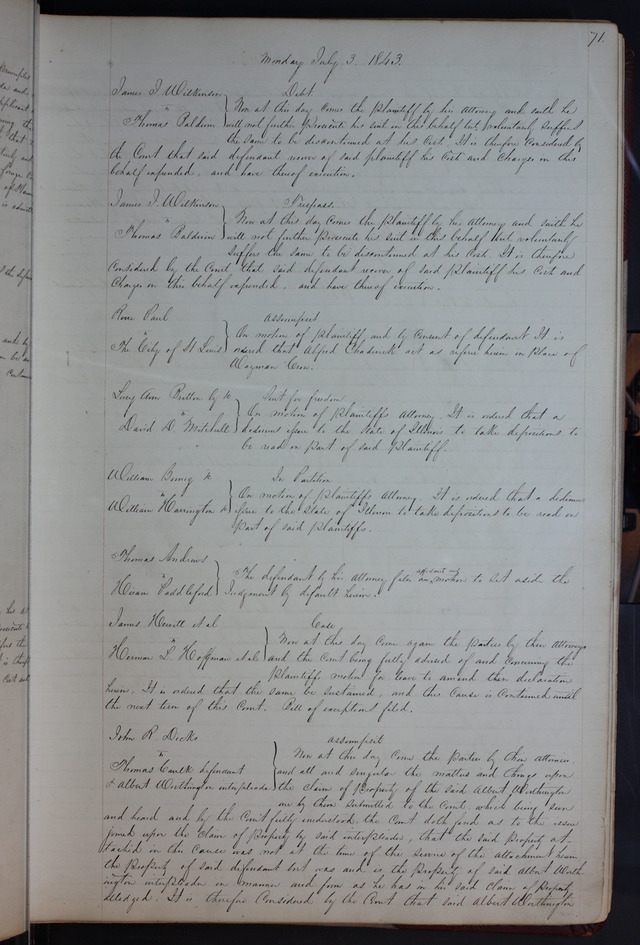 71.
Monday July 3. 1843.
James J. Wilkinson Debt
vs Now at this day comes the Plaintiff by his attorney and saith he
Thomas Baldwin will not further Prosecute his suit in this behalf but voluntarily suffers
the same to be discontinued at his Cost. It is therefore Considered by
the Court that said defendant recover of said plaintiff his Cost and Charges in this
behalf expended, and have thereof execution.
James J. Wilkinson Trespass.
vs Now at this day Comes the Plaintiff by his Attorney and saith he
Thomas Baldwin will not further Prosecute his suit in this behalf but voluntarily
suffers the same to be discontinued at his Cost. It is therefore
Considered by the Court that said defendant recover of said Plaintiff his Cost and
Charges in this behalf expended, and have thereof execution.
Rene Paul assumpsit
vs On motion of plaintiff, and by consent of defendant It is
The City of St Louis ordered that Alfred Chadwick act as referee herein in place of
Wayman Crow.
Lucy Ann Britton by &c Suit for freedom
vs On motion of Plaintiffs Attorney, It is ordered that a
David D. Mitchell dedimus issue to the State of Illinois to take depositions to
be read on part of said Plaintiff.
William &c In Partition
vs On motion of plaintiffs Attorney. It is ordered that a dedimus
William Harrington &c issue to the State of Illinois to take depositions to be read on
Part of said plaintiffs.
Thomas Andrews
vs The defendant by his attorney files affidavit and motion to set aside the
Hiram Paddleford Judgement by default herein.
James Hewitt et al Case
vs Now at this day Come again the Parties by their Attorneys
Herman L. Hoffman et al and the Court being fully advised of and Concerning the
Plaintiffs motion for leave to amend their declaration
herein. It is ordered that the same be sustained, and this Cause is Continued until
the next term of this Court. Bill of exceptions filed.
John R. Dicks assumpsit
vs Now at this day Come the Parties by their attornies,
Thomas Caulk defendant and all and singular the matters and things upon
& Albert Worthington interpleader the Claim of Property of the said Albert Worthington
are by them submitted to the Court, which being seen
and heard and by the Court fully understood, the Court doth find as to the issue
joined upon the Claim of Property by said interpleader, that the said Property at-
tached in this Cause was not at the time of the service of the attachment herein
the Property of said defendant but was and is the Property of said Albert Worth
ington interpleader in manner and form as he has in his said Claim of Property
alledged. It is therefore Considered by the Court that said Albert Worthington